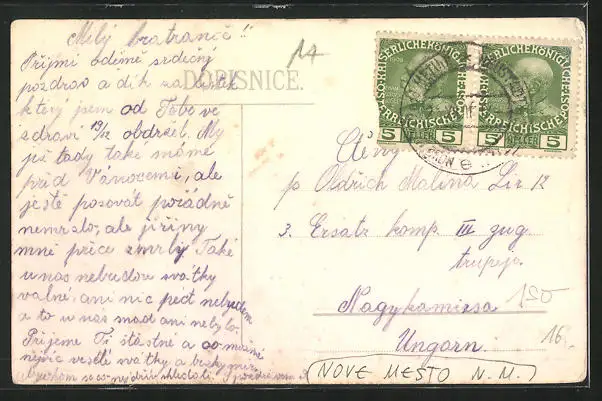 Milý bratranče!!
14
Přijmi odemě srdečný
pozdrav a dík za lístek
DOPISNICE.
který jsem od Tebe ve
zdraví 19/12 obdržel. My
již tady také máme
před Vánocemi, ale
ještě posavát pořádně
nemrzlo, ale jiřiny
mně přece zmrzly. Také
u nás nebudou svátky
valné, ani nic pect nebudem
a to u nás snad ani nebylo.
Přijeme Ti šťastné a co možná
nejvíc veselé svátky a
shledali.
KAISERLICHE KÖNIGLICHE
ÖSTERREICHISCHE POST
5 HELLER 5
KAISERLICHE KÖNIGLICHE
ÖSTERREICHISCHE POST
5 HELLER 5
Ctěný
p Oldřich Malina
3. Ersatz komp. III zug.
Nagykanizsa
150
Ungarn.
16.
(NOVE MĚSTO N. M.)